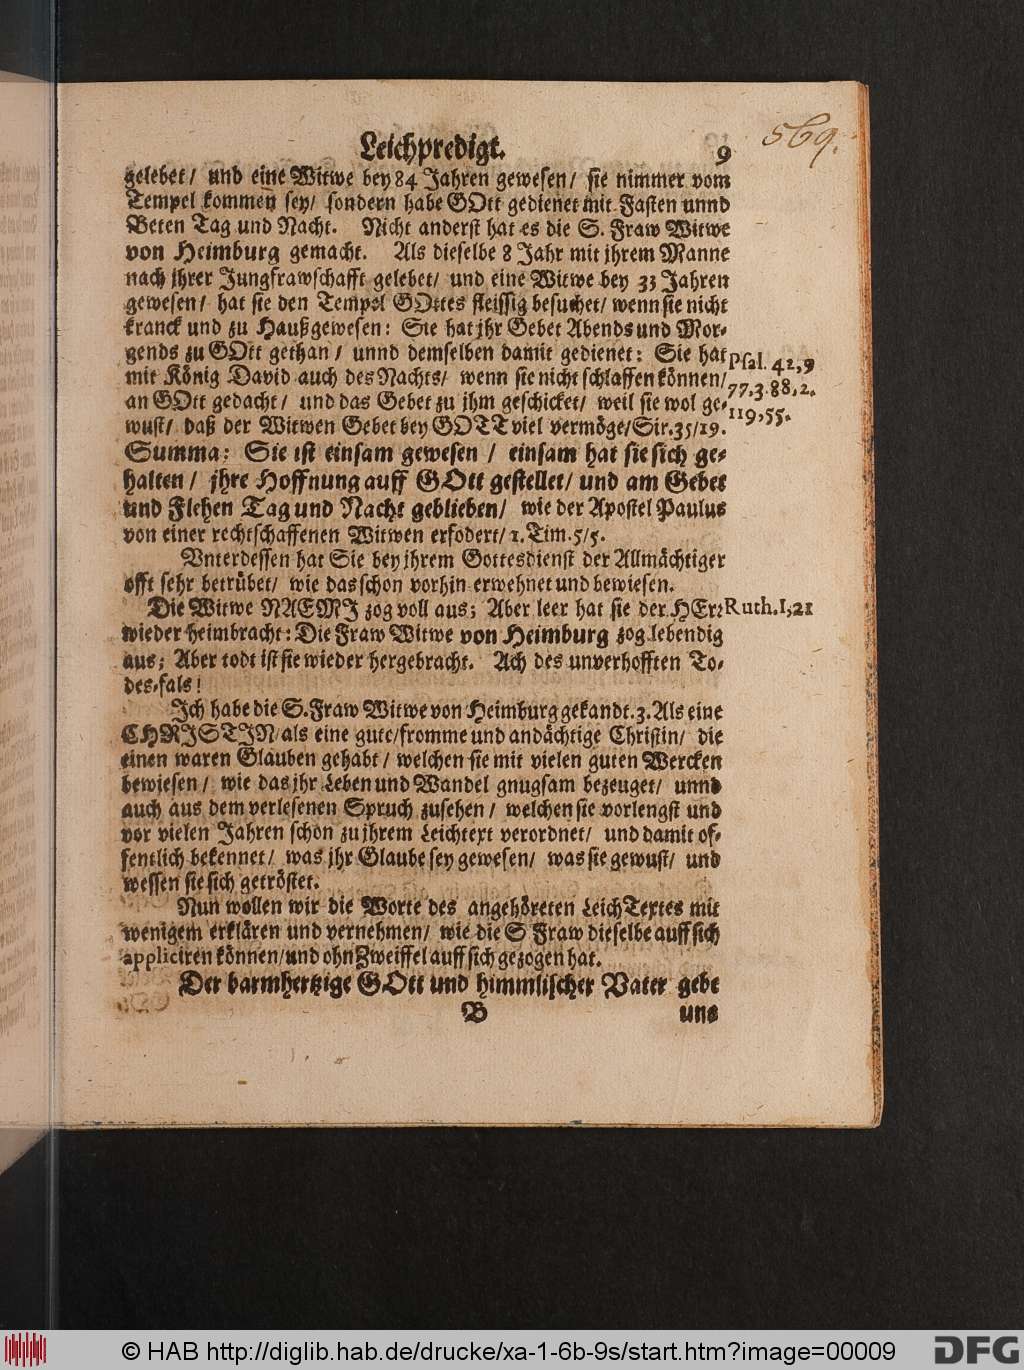 569.
Leichpredigt. 9
gelebet/ und eine Witwe bey 84 Jahren gewesen/ sie nimmer vom
Tempel kommen sey/ sondern habe GOtt gedienet mit Fasten unnd
Beten Tag und Nacht. Nicht anderst hat es die S. Fraw Witwe
von Heimburg gemacht. Als dieselbe 8 Jahr mit jhrem Manne
nach jhrer Jungfrawschafft gelebet/ und eine Witwe bey 33 Jahren
gewesen/ hat sie den Tempel GOttes fleissig besuchet/ wenn sie nicht
kranck und zu Hauß gewesen: Sie hat jhr Gebet Abends und Mor-
gends zu GOtt gethan/ unnd demselben damit gedienet: Sie hat
mit König David auch des Nachts/ wenn sie nicht schlaffen können/
an GOtt gedacht/ und das Gebet zu jhm geschicket/ weil sie wol ge-
wust/ daß der Witwen Gebet bey GOTT viel vermöge/ Sir. 35/19.
Psal. 42,9
77,3.88,2.
119,55.
Summa: Sie ist einsam gewesen/ einsam hat sie sich ge-
halten/ jhre Hoffnung auff GOtt gestellet/ und am Gebet
und Flehen Tag und Nacht geblieben/ wie der Apostel Paulus
von einer rechtschaffenen Witwen erfodert/ 1. Tim. 5/5.
Vnterdessen hat Sie bey jhrem Gottesdienst der Allmächtiger
offt sehr betrübet/ wie das schon vorhin erwehnet und bewiesen.
Die Witwe NAEMI zog voll aus; Aber leer hat sie der HErr
Ruth. 1,21
wieder heimbracht: Die Fraw Witwe von Heimburg zog lebendig
aus; Aber todt ist sie wieder hergebracht. Ach des unverhofften To-
des-fals!
Ich habe die S. Fraw Witwe von Heimburg gekandt. 3. Als eine
CHRISTIN/ als eine gute/ fromme und andächtige Christin/ die
einen waren Glauben gehabt/ welchen sie mit vielen guten Wercken
bewiesen/ wie das jhr Leben und Wandel gnugsam bezeuget/ unnd
auch aus dem verlesenen Spruch zusehen/ welchen sie vorlengst und
vor vielen Jahren schon zu jhrem Leichtext verordnet/ und damit of-
fentlich bekennet/ was jhr Glaube sey gewesen/ was sie gewust/ und
wessen sie sich getröstet.
Nun wollen wir die Worte des angehöreten LeichTextes mit
wenigem erklären und vernehmen/ wie die S Fraw dieselbe auff sich
appliciren können/ und ohn Zweiffel auff sich gezogen hat.
Der barmhertzige GOtt und himmlischer Vater gebe
B uns
© HAB http://diglib.hab.de/drucke/xa-1-6b-9s/start.htm?image=00009
DFG